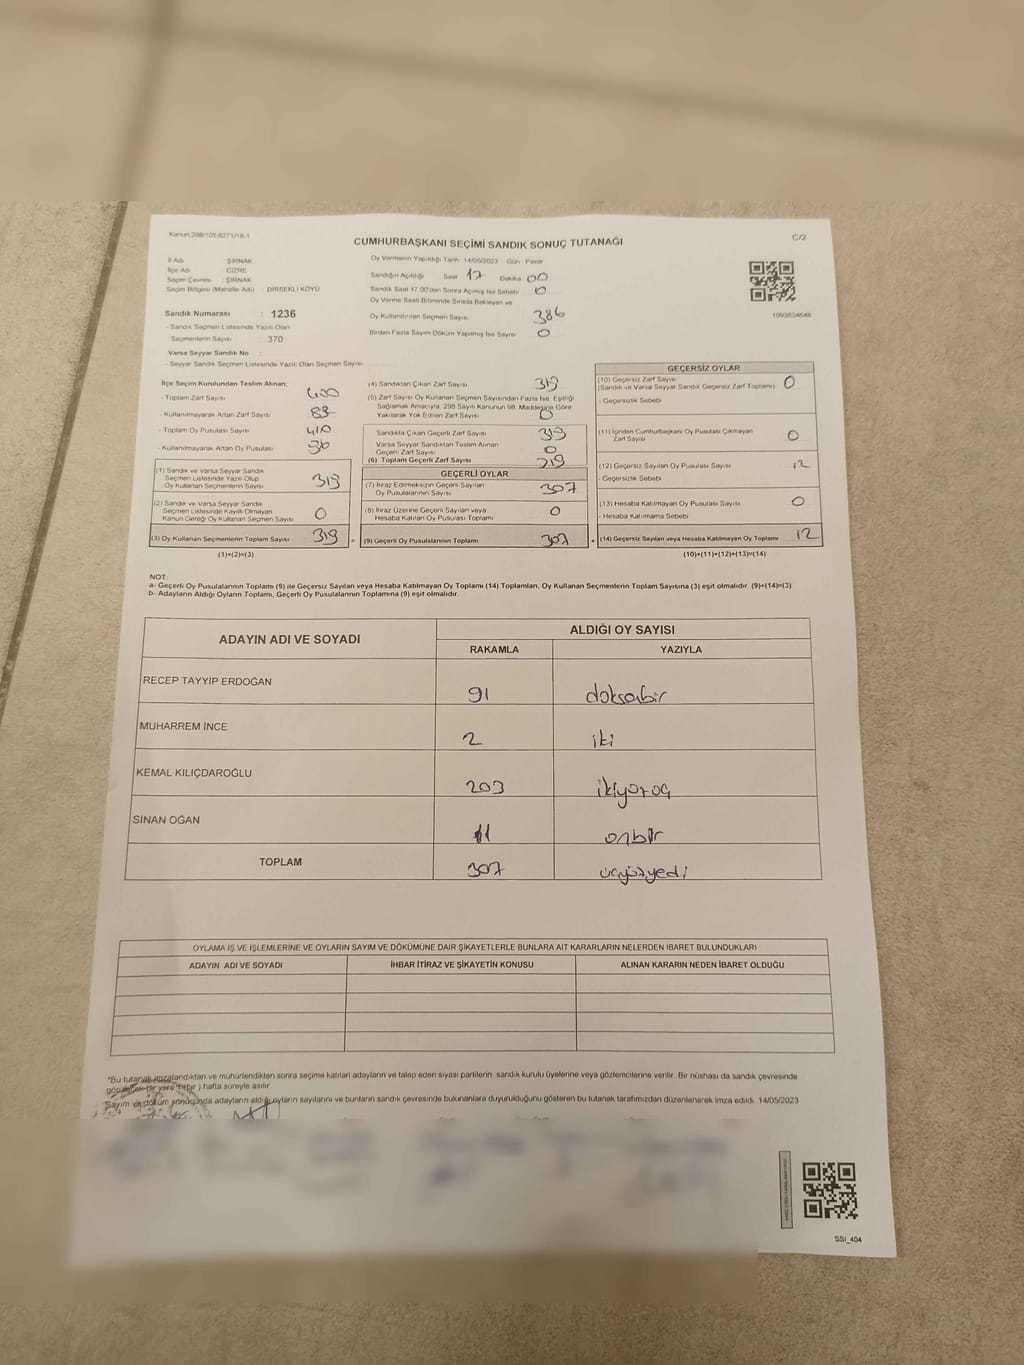 Kanun:298/105;6271/19-1
CUMHURBAŞKANI SEÇİMİ SANDIK SONUÇ TUTANAĞI
C/2
İl Adı : ŞIRNAK
İlçe Adı : CİZRE
Seçim Çevresi : ŞIRNAK
Seçim Bölgesi (Mahalle Adı) DİRSEKLİ KÖYÜ
Sandık Numarası : 1236
- Sandık Seçmen Listesinde Yazılı Olan
Seçmenlerin Sayısı : 370
Varsa Seyyar Sandık No
- Seyyar Sandık Seçmen Listesinde Yazılı Olan Seçmen Sayısı
Oy Vermenin Yapıldığı Tarih 14/05/2023 Gün : Pazar
Sandığın Açıldığı Saat 17 Dakika 00
Sandık Saat 17.00'den Sonra Açılmış İse Sebebi 0
Oy Verme Saati Bitiminde Sırada Bekleyen ve
Oy Kullandırılan Seçmen Sayısı 386
Birden Fazla Sayım Döküm Yapılmış İse Sayısı 0
1093834648
İlçe Seçim Kurulundan Teslim Alınan;
- Toplam Zarf Sayısı 400
- Kullanılmayarak Artan Zarf Sayısı
- Toplam Oy Pusulası Sayısı 410
- Kullanılmayarak Artan Oy Pusulası
(1) Sandık ve Varsa Seyyar Sandık
Seçmen Listesinde Yazılı Olup
Oy Kullanan Seçmenlerin Sayısı 319
(2) Sandık ve Varsa Seyyar Sandık
Seçmen Listesinde Kayıtlı Olmayan
Kanun Gereği Oy Kullanan Seçmen Sayısı 0
(3) Oy Kullanan Seçmenlerin Toplam Sayısı 319
(1)+(2)=(3)
(4) Sandıktan Çıkan Zarf Sayısı 319
(5) Zarf Sayısı Oy Kullanan Seçmen Sayısından Fazla İse, Eşitliği
Sağlamak Amacıyla, 298 Sayılı Kanunun 98. Maddesine Göre
Yakılarak Yok Edilen Zarf Sayısı 0
Sandıkta Çıkan Geçerli Zarf Sayısı 319
Varsa Seyyar Sandıktan Teslim Alınan
Geçerli Zarf Sayısı 0
(6) Toplam Geçerli Zarf Sayısı 319
GEÇERLİ OYLAR
(7) İtiraz Edilmeksizin Geçerli Sayılan
Oy Pusulalarının Sayısı 307
(8) İtiraz Üzerine Geçerli Sayılan veya
Hesaba Katılan Oy Pusulası Toplamı 0
(9) Geçerli Oy Pusulalarının Toplamı 307
GEÇERSİZ OYLAR
(10) Geçersiz Zarf Sayısı 0
(Sandık ve Varsa Seyyar Sandık Geçersiz Zarf Toplamı)
- Geçersizlik Sebebi
(11) İçinden Cumhurbaşkanı Oy Pusulası Çıkmayan
Zarf Sayısı 0
(12) Geçersiz Sayılan Oy Pusulası Sayısı 12
- Geçersizlik Sebebi
(13) Hesaba Katılmayan Oy Pusulası Sayısı 0
- Hesaba Katılmama Sebebi
(14) Geçersiz Sayılan veya Hesaba Katılmayan Oy Toplamı 12
(10)+(11)+(12)+(13)=(14)
NOT:
a- Geçerli Oy Pusulalarının Toplamı (9) ile Geçersiz Sayılan veya Hesaba Katılmayan Oy Toplamı (14) Toplamları, Oy Kullanan Seçmenlerin Toplam Sayısına (3) eşit olmalıdır. (9)+(14)=(3)
b- Adayların Aldığı Oyların Toplamı, Geçerli Oy Pusulalarının Toplamına (9) eşit olmalıdır.
ADAYIN ADI VE SOYADI ALDIĞI OY SAYISI
RAKAMLA YAZIYLA
RECEP TAYYİP ERDOĞAN 91 doksanbir
MUHARREM İNCE 2 iki
KEMAL KILIÇDAROĞLU 203 ikiyüzüç
SİNAN OĞAN 11 onbir
TOPLAM 307 üçyüzyedi
OYLAMA İŞ VE İŞLEMLERİNE VE OYLARIN SAYIM VE DÖKÜMÜNE DAİR ŞİKAYETLERLE BUNLARA AİT KARARLARIN NELERDEN İBARET BULUNDUKLARI
ADAYIN ADI VE SOYADI İHBAR İTİRAZ VE ŞİKAYETİN KONUSU ALINAN KARARIN NEDEN İBARET OLDUĞU
*Bu tutanak imzalandıktan ve mühürlendikten sonra seçime katılan adayların ve talep eden siyasi partilerin sandık kurulu üyelerine veya gözlemcilerine verilir. Bir nüshası da sandık çevresinde
görülebilir bir yere 1(bir) hafta süreyle asılır.
Sayım ve döküm sonucunda adayların aldığı oyların sayılarını ve bunların sandık çevresinde bulunanlara duyurulduğunu gösteren bu tutanak tarafımızdan düzenlenerek imza edildi. 14/05/2023
SSI_404